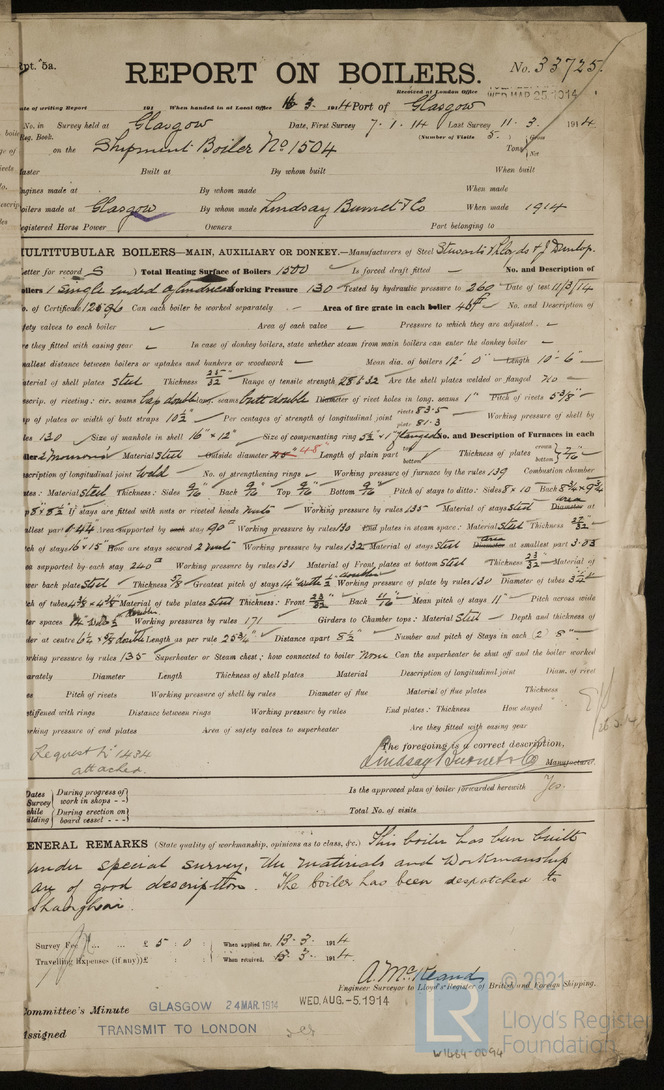 Rpt. 5a.
REPORT ON BOILERS.
No. 33725
Received at London Office
WED. MAR. 25 1914
Date of writing Report 191 When handed in at Local Office 16. 3. 1914 Port of Glasgow
No. in Survey held at Glasgow Date, First Survey 7. 1. 14 Last Survey 11. 3. 1914
Reg. Book. (Number of Visits 5.)
on the Shipment Boiler No 1504 Tons { Gross Net
Master Built at By whom built When built
Engines made at By whom made When made
Boilers made at Glasgow By whom made Lindsay Burnet & Co When made 1914
Registered Horse Power Owners Port belonging to
MULTITUBULAR BOILERS—MAIN, AUXILIARY OR DONKEY.—Manufacturers of Steel Stewarts & Lloyds & J Dunlop.
Letter for record S Total Heating Surface of Boilers 1500 Is forced draft fitted — No. and Description of
Boilers 1 Single ended Cylindrical Working Pressure 130 Tested by hydraulic pressure to 260 Date of test 11/3/14
No. of Certificate 12596 Can each boiler be worked separately Area of fire grate in each boiler No. and Description of
safety valves to each boiler Area of each valve Pressure to which they are adjusted
Are they fitted with easing gear In case of donkey boilers, state whether steam from main boilers can enter the donkey boiler
Smallest distance between boilers or uptakes and bunkers or woodwork Mean dia. of boilers 12'- 0" Length 10'- 6"
Material of shell plates Steel Thickness 25/32 Range of tensile strength 28 & 32 Are the shell plates welded or flanged no
Descrip. of riveting: cir. seams lap double long. seams butt double Diameter of rivet holes in long. seams 1" Pitch of rivets 5 3/8"
Lap of plates or width of butt straps 10 1/2" Per centages of strength of longitudinal joint rivets 83.5 plates 81.3 Working pressure of shell by
rules 130 Size of manhole in shell 16" × 12" Size of compensating ring No. and Description of Furnaces in each
boiler 2 Morrisons Material Steel Outside diameter 48" Length of plain part top bottom Thickness of plates crown bottom } 7/16"
Description of longitudinal joint weld No. of strengthening rings Working pressure of furnace by the rules 139 Combustion chamber
plates: Material Steel Thickness: Sides 9/16" Back 9/16" Top 9/16" Bottom 9/16" Pitch of stays to ditto: Sides 8 × 10 Back
Top If stays are fitted with nuts or riveted heads nuts Working pressure by rules 135 Material of stays Steel Diameter area at
smallest part Area supported by each stay 90" Working pressure by rules 130 End plates in steam space: Material Steel Thickness
Pitch of stays 16 × 15" How are stays secured 2 nuts Working pressure by rules 132 Material of stays Steel Diameter area at smallest part 3.03
Area supported by each stay 240" Working pressure by rules 131 Material of Front plates at bottom Steel Thickness 23/32" Material of
Lower back plate Steel Thickness 5/8 Greatest pitch of stays 14" Working pressure of plate by rules 130 Diameter of tubes
Pitch of tubes Material of tube plates Steel Thickness: Front 23/32" Back 11/16" Mean pitch of stays 11" Pitch across wide
water spaces Working pressures by rules 171 Girders to Chamber tops: Material Steel Depth and thickness of
girder at centre Length as per rule 25 3/4" Distance apart 8 1/2" Number and pitch of Stays in each (2) 8"
Working pressure by rules 135 Superheater or Steam chest; how connected to boiler None Can the superheater be shut off and the boiler worked
separately Diameter Length Thickness of shell plates Material Description of longitudinal joint Diam. of rivet
holes Pitch of rivets Working pressure of shell by rules Diameter of flue Material of flue plates Thickness
If stiffened with rings Distance between rings Working pressure by rules End plates: Thickness How stayed
Working pressure of end plates Area of safety valves to superheater Are they fitted with easing gear
Request No 1434
attached.
The foregoing is a correct description,
Lindsay Burnet & Co Manufacturer.
Dates of Survey while building { During progress of work in shops - - During erection on board vessel - - -
Is the approved plan of boiler forwarded herewith Yes.
Total No. of visits
GENERAL REMARKS (State quality of workmanship, opinions as to class, &c.) This boiler has been built
under special survey, the materials and workmanship
are of good description. The boiler has been despatched to
Shanghai.
Survey Fee ... ... £ 5 : 0 : When applied for. 13. 3. 1914
Travelling Expenses (if any) £ : : When received. 13. 3. 1914
A. McKeand
Engineer Surveyor to Lloyd's Register of British and Foreign Shipping.
Committee's Minute GLASGOW 24 MAR. 1914 WED. AUG. -5. 1914
Assigned TRANSMIT TO LONDON
© 2021
LR
Lloyd's Register
Foundation
W1464-0094